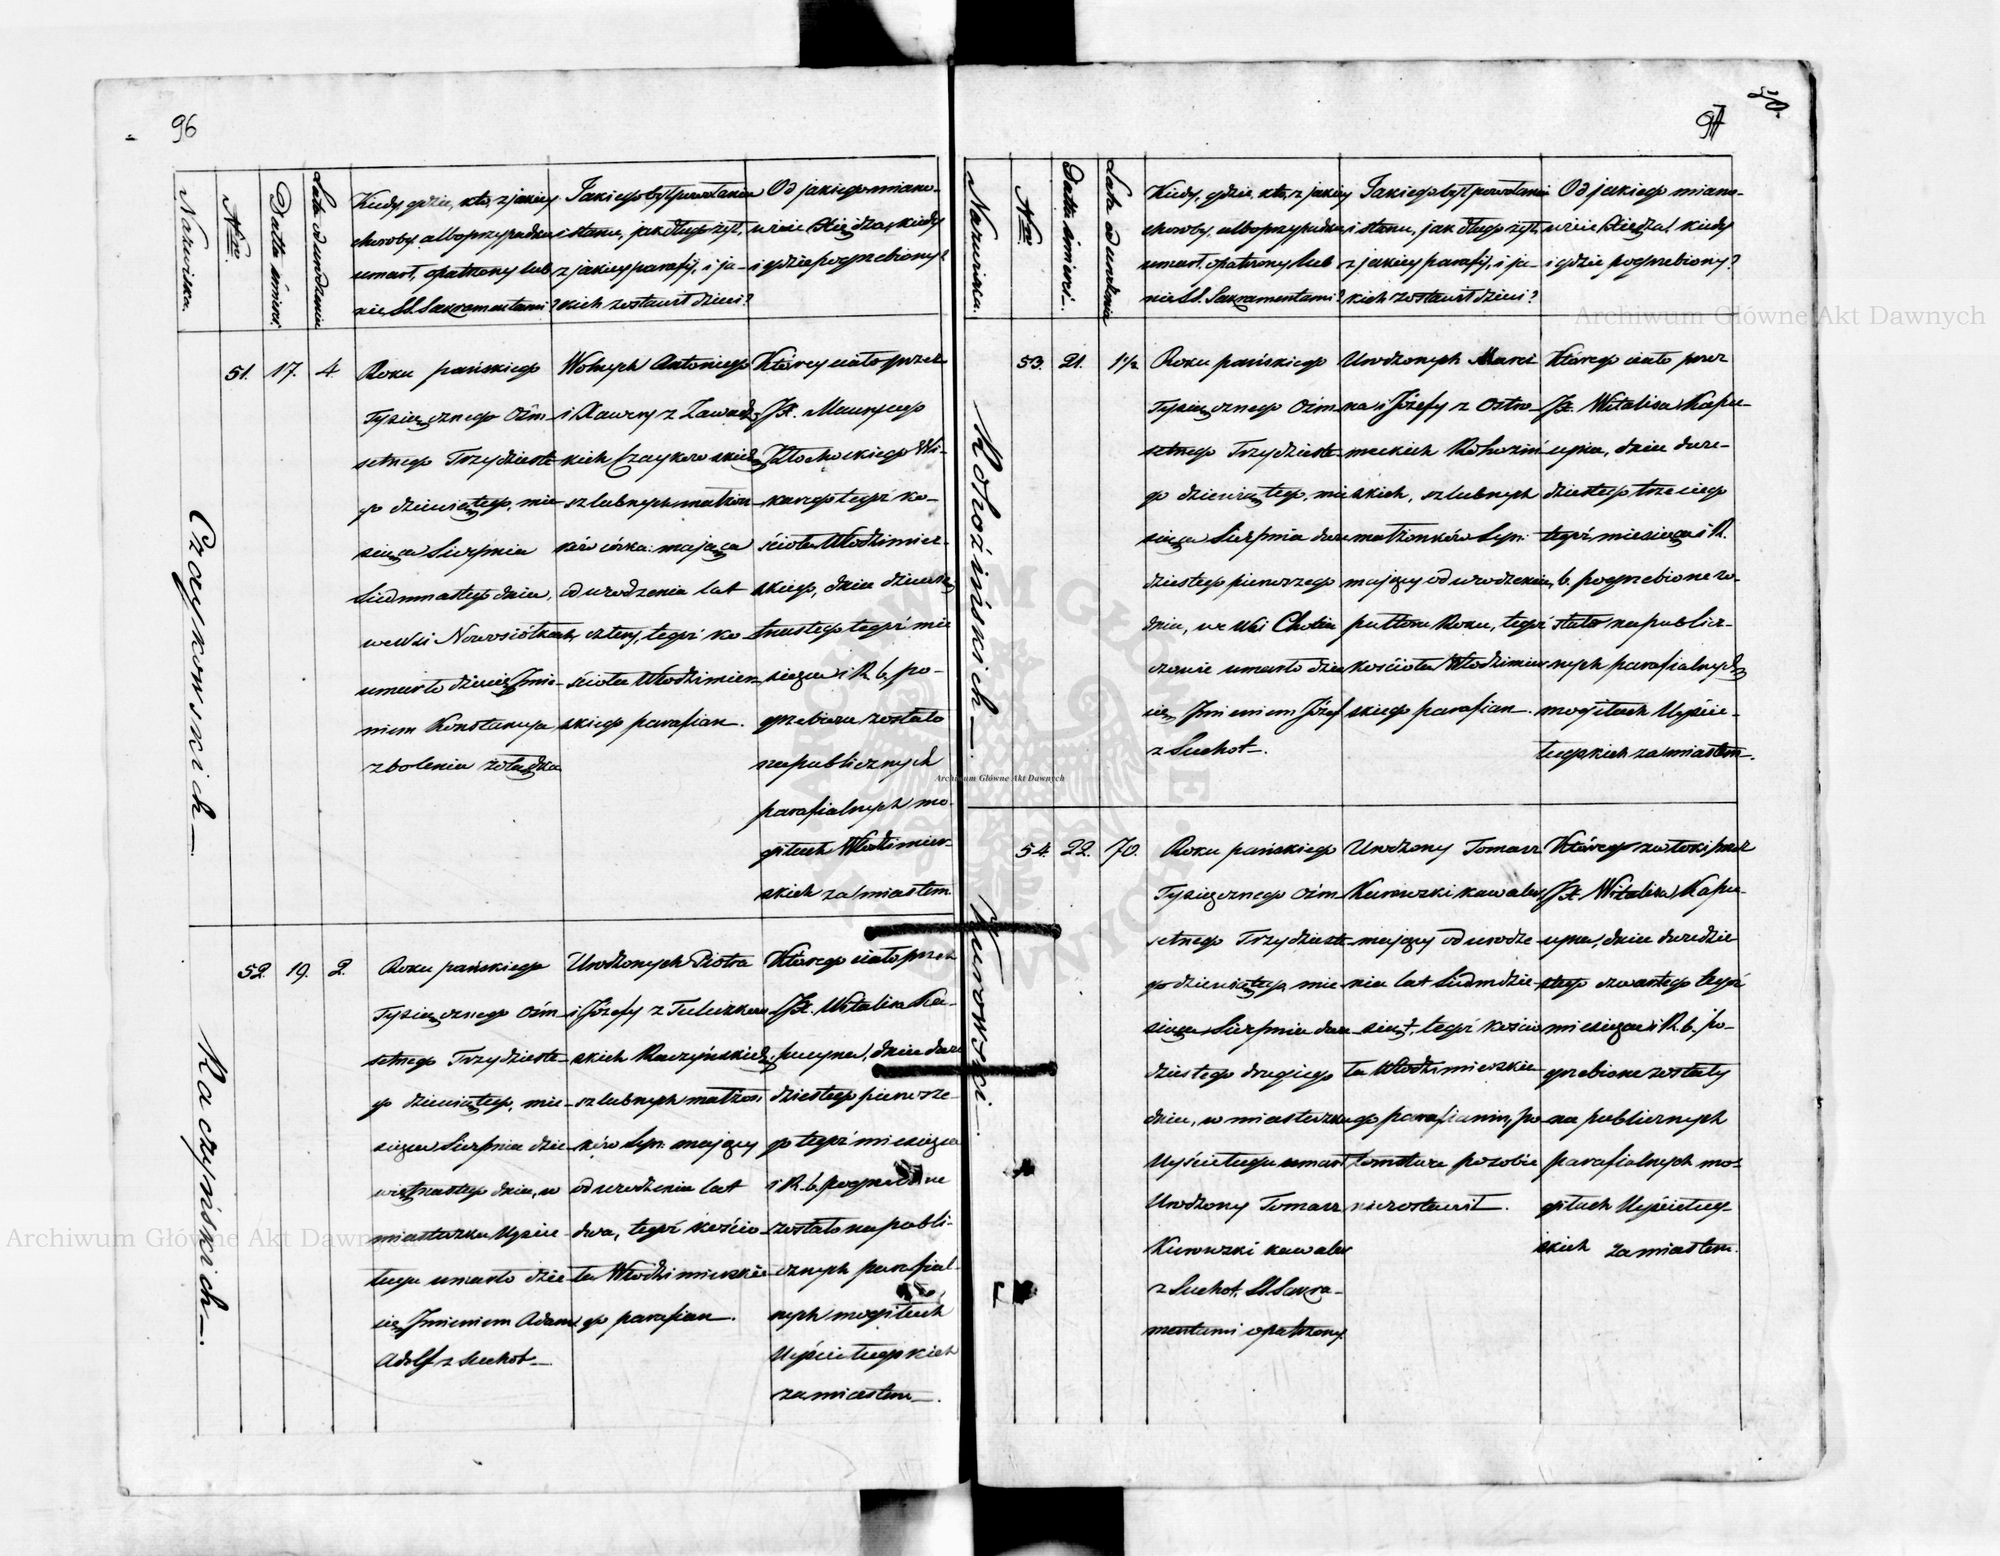 96
Nazwiska.
Nro
Datta śmierci.
Lata od urodzenia
Kiedy, gdzie, kto, z jakiey
choroby, albo przypadku
umarł, opatrzony lub
nie, SS. Sakramentami?
Jakiego był powołania
i stanu, jak długo żył,
z jakiey parafij, i ja-
kich zostawił dzieci?
Od jakiego miano-
wicie Xiędza, kiedy
i gdzie pogrzebiony?
Czaykowskich
51.
17.
4.
Roku pańskiego
Tysiącznego Ośm-
setnego Trzydzieste-
go dziewiątego, mie-
siąca Sierpnia
Siedmnastego dnia,
we Wsi Nowosiółkach
umarło dziecię Jmie-
niem Konstancya
z bolenia żołądka
Wolnych Antoniego
i Xawery z Zawadz-
kich Czaykowskich
szlubnych małżon-
ków córka: mająca
od urodzenia lat
cztery, tegoż ko-
ścioła Włodzimier-
skiego parafian.
Którey ciało przez
JX. Maurycego
Kłochockiego Wi-
karego tegoż ko-
ścioła Włodzimier-
skiego, dnia dziewięt-
nastego tegoż mie-
siąca i R. b. po-
grzebione zostało
na publicznych
parafialnych mo-
giłach Włodzimier-
skich za miastem.
Raczyńskich
52.
19.
2.
Roku pańskiego
Tysiącznego Ośm-
setnego Trzydzieste-
go dziewiątego, mie-
siąca Sierpnia dzie-
więtnastego dnia, w
miasteczku Uściu-
ługu umarło dzie-
cię, Jmieniem Adam
Adolf z Suchot
Urodzonych Piotra
i Józefy z
skich Raczyńskich,
szlubnych małżon-
ków Syn: mający
od urodzenia lat
dwa, tegoż kościo-
ła Włodzimierskie-
go parafian.
Którego ciało przez
JX. Witalisa Ka-
pucyna, dnia dwu-
dziestego pierwsze-
go tegoż miesiąca
i R. b. pogrzebione
zostało na publi-
cznych parafial-
nych mogiłach
Uściługskich
za miastem.
97
50.
Nazwiska.
Nro
Datta śmierci
Lata od urodzenia
Kiedy, gdzie, kto, z jakiey
choroby, albo przypadku
umarł, opatrzony lub
nie SS. Sakramentami?
Jakiego był powołania
i stanu, jak długo żył,
z jakiey parafij, i ja-
kich zostawił dzieci?
Od jakiego miano-
wicie Xiędza, kiedy
i gdzie pogrzebiony?
Rohozińskich
53.
21.
1½
Roku pańskiego
Tysiącznego Ośm-
setnego Trzydzieste-
go dziewiątego, mie-
siąca Sierpnia dwu-
dziestego pierwszego
dnia, we Wsi
umarło dzie-
cię, Jmieniem Józef
z Suchot.
Urodzonych Marci-
na i Józefy z Ostro-
meckich Rohoziń-
skich, szlubnych
małżonków Syn:
mający od urodzenia
pułtora Roku, tegoż
kościoła Włodzimier-
skiego parafian.
Którego ciało przez
JX. Witalisa Kapu-
cyna, dnia dwu-
dziestego trzeciego
tegoż miesiąca i R.
b. pogrzebione zo-
stało na publicz-
nych parafialnych
mogiłach Uściu-
ługskich za miastem.
Kurowski
54.
22.
70.
Roku pańskiego
Tysiącznego Ośm-
setnego Trzydzieste-
go dziewiątego, mie-
siąca Sierpnia dwu-
dziestego drugiego
dnia, w miasteczku
Uściuługu umarł
Urodzony Tomasz
Kurowski kawaler
z Suchot, SS. Sakra-
mentami opatrzony.
Urodzony Tomasz
Kurowski kawaler,
mający od urodze-
nia lat Siedmdzie-
siąt, tegoż kościo-
ła Włodzimierskie-
go parafianin, po-
tomstwa po sobie
niezostawił.
Którego zwłoki przez
JX. Witalisa Kapu-
cyna, dnia dwudzie-
stego czwartego tegoż
miesiąca i R. b. po-
grzebione zostały
na publicznych
parafialnych mo-
giłach Uściuług-
skich za miastem.
Archiwum Główne Akt Dawnych
Archiwum Główne Akt Dawnych
Archiwum Główne Akt Dawnych